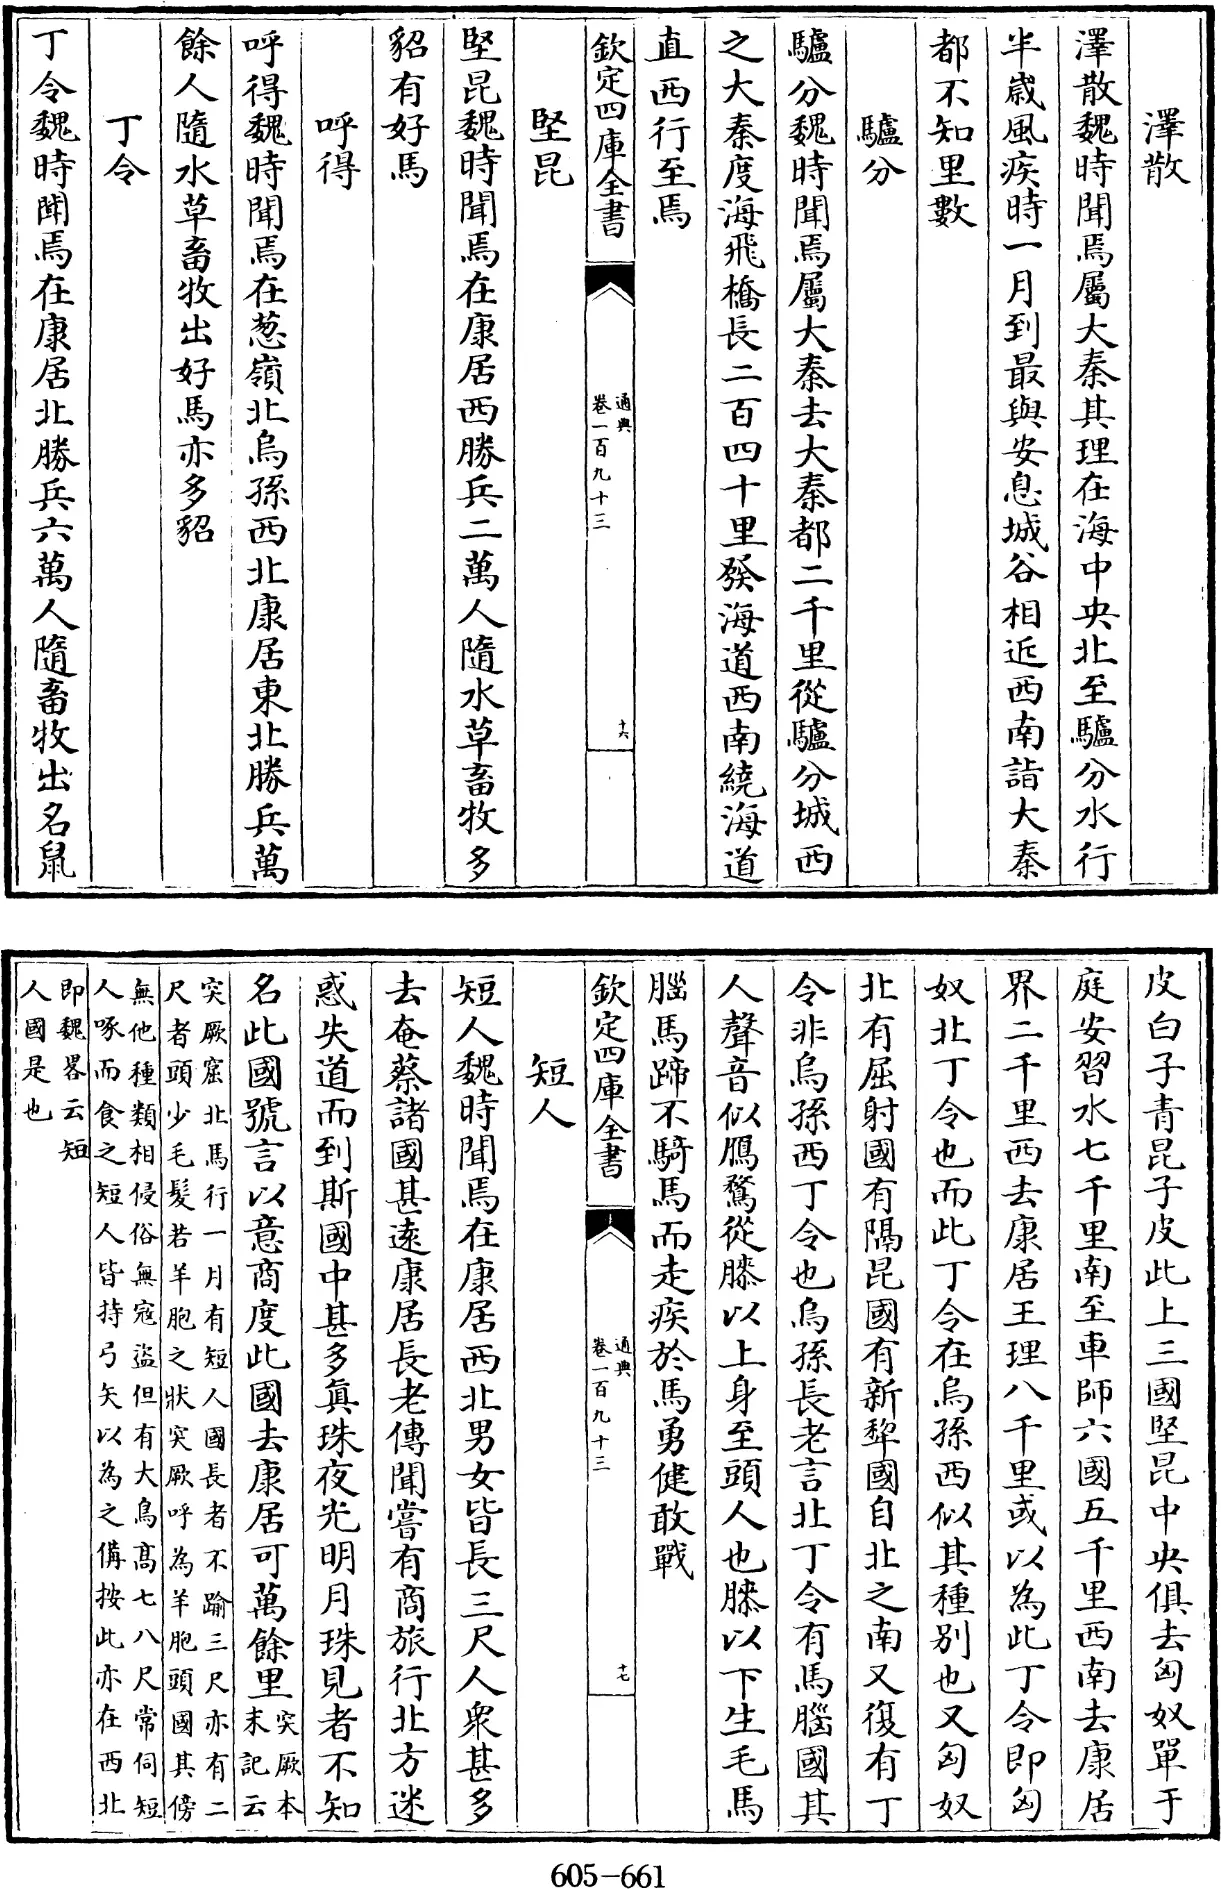 澤散
澤散魏時聞焉屬大秦其理在海中央北至驢分水行
半嵗風疾時一月到最與安息城谷相近西南詣大秦
都不知里數
驢分
驢分魏時聞焉屬大秦去大秦都二千里從驢分城西
之大秦度海飛橋長二百四十里發海道西南繞海道
直西行至焉
欽定四庫全書
通典
卷一百九十三
十六
堅昆
堅昆魏時聞焉在康居西勝兵二萬人隨水草畜牧多
貂有好馬
呼得
呼得魏時聞焉在葱嶺北烏孫西北康居東北勝兵萬
餘人隨水草畜牧出好馬亦多貂
丁令
丁令魏時聞焉在康居北勝兵六萬人隨畜牧出名鼠
皮白子青昆子皮此上三國堅昆中央俱去匈奴單于
庭安習水七千里南至車師六國五千里西南去康居
界二千里西去康居王理八千里或以為此丁令即匈
奴北丁令也而此丁令在烏孫西似其種别也又匈奴
北有屈射國有隔昆國有新犂國自北之南又復有丁
令非烏孫西丁令也烏孫長老言北丁令有馬腦國其
人聲音似鴈鶩從膝以上身至頭人也膝以下生毛馬
腦馬蹄不騎馬而走疾於馬勇健敢戰
欽定四庫全書
通典
卷一百九十三
十七
短人
短人魏時聞焉在康居西北男女皆長三尺人衆甚多
去奄蔡諸國甚逺康居長老傳聞嘗有商旅行北方迷
惑失道而到斯國中甚多真珠夜光明月珠見者不知
名此國號言以意商度此國去康居可萬餘里突厥本
末記云
突厥窟北馬行一月有短人國長者不踰三尺亦有二
尺者頭少毛髮若羊胞之狀突厥呼為羊胞頭國其傍
無他種類相侵俗無寇盗但有大鳥高七八尺常伺短
人啄而食之短人皆持弓矢以為之備按此亦在西北
即魏畧云短
人國是也
605-661